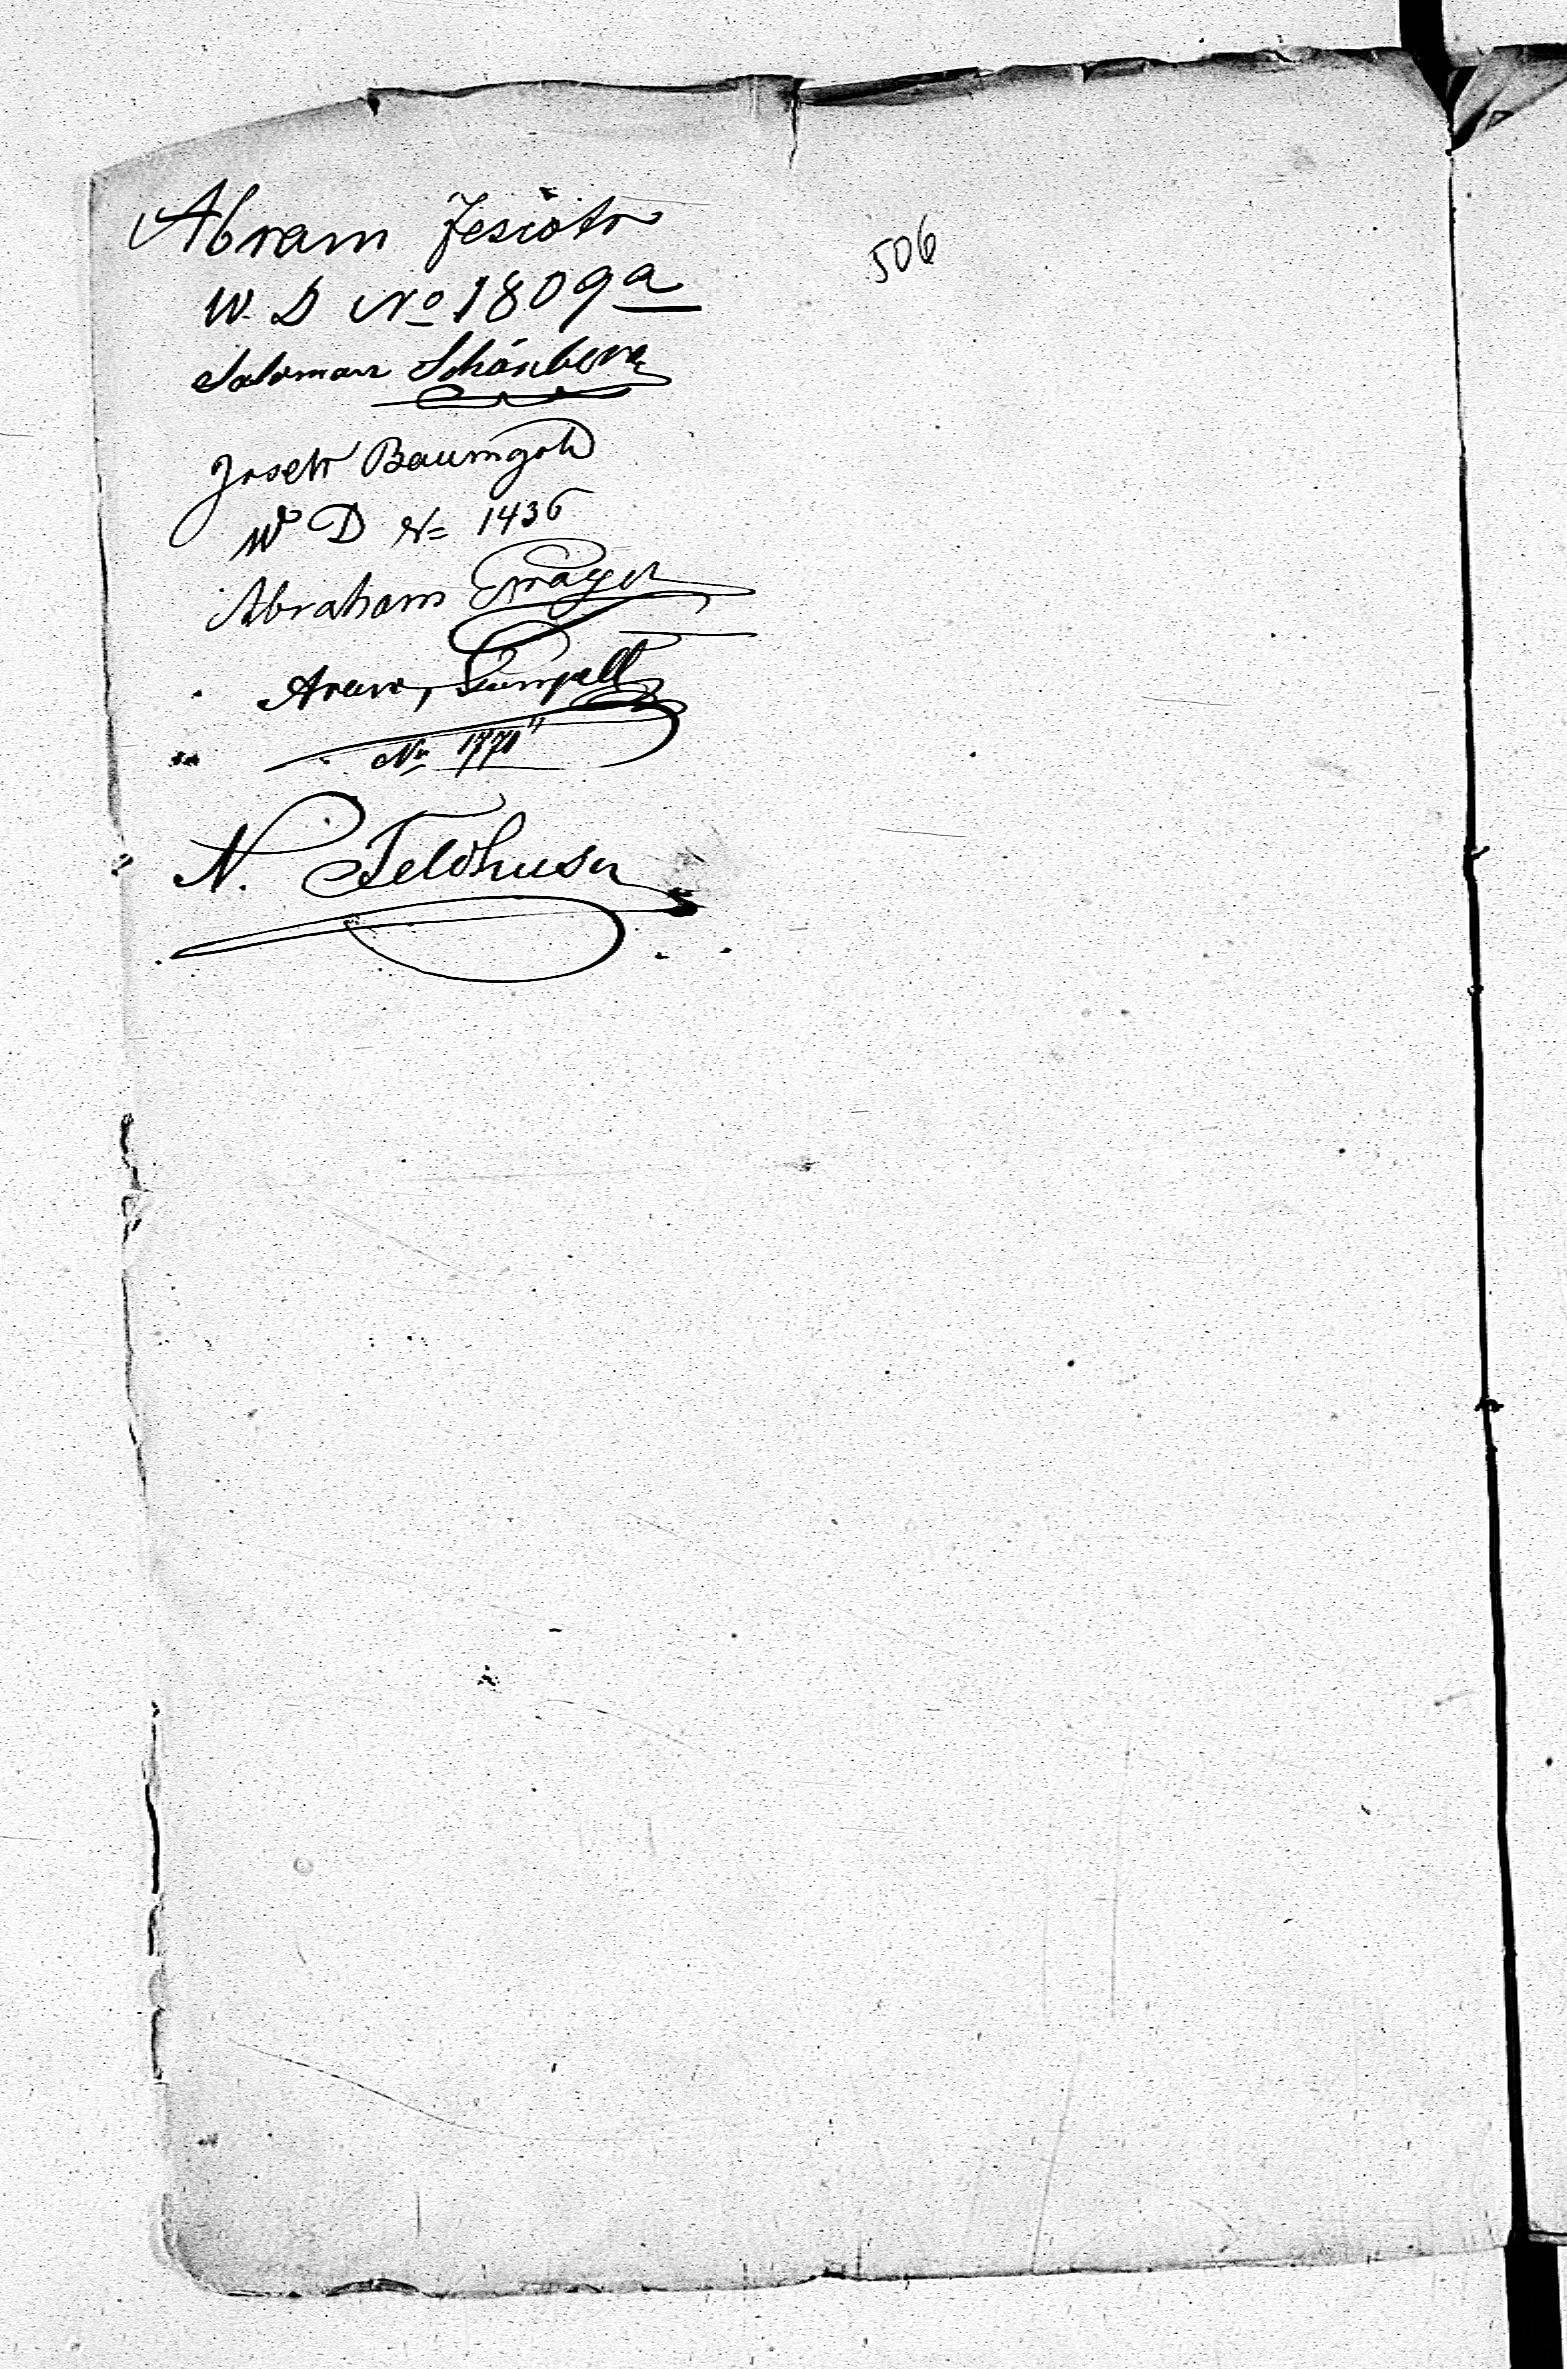 Abram Jesiotr
506
W. D No 1809a
Salomon Schönberg
Josek Baumgold
W D No 1436
Abraham Prager
Aron
No 1770
N. Feldhusen